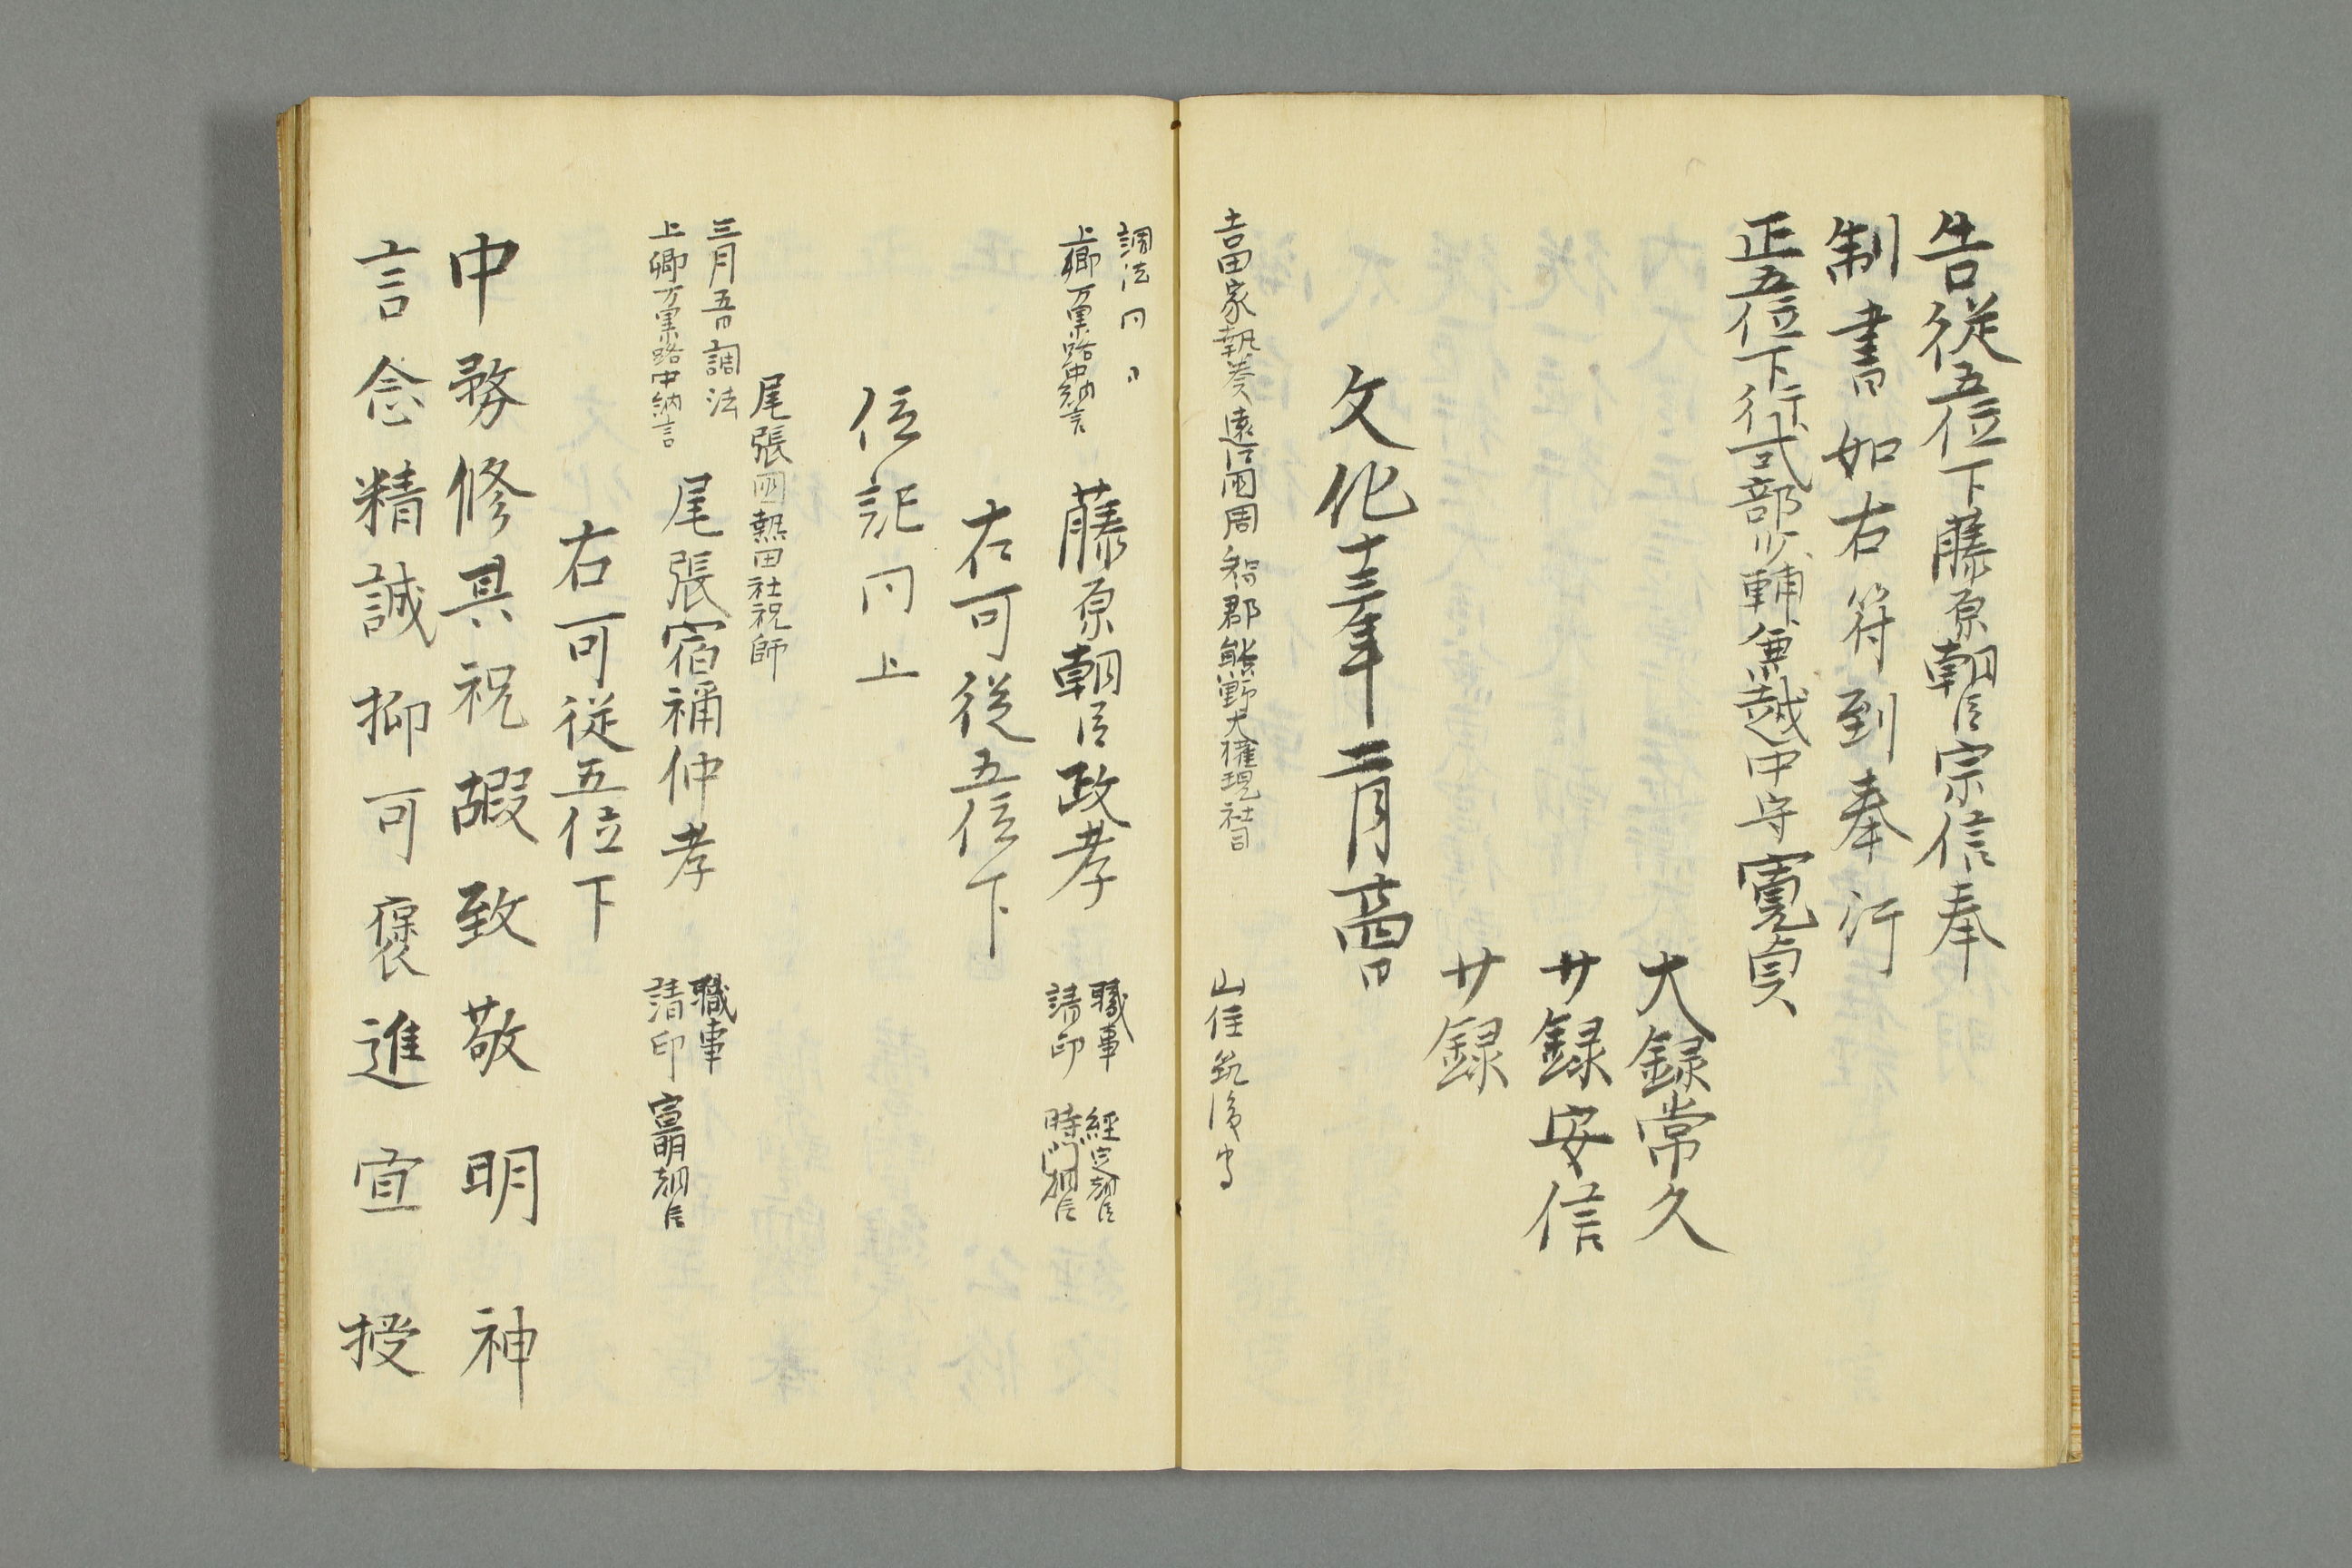 告従五位下藤原朝臣宗信奉
制書如右符到奉行
正五位下行式部少輔兼越中守寛貞
大録常久
少録安信
少録
文化十三年二月廿四日
吉田家執奏遠江国周智郡熊野大権現社司
山住筑後守
調法同日
上卿万里小路中納言
藤原朝臣政孝
職事経定朝臣
請印時門朝臣
右可従五位下
位記同上
尾張国熱田社祝師
三月五日調法
上卿万里小路中納言
尾張宿祢仲孝
職事
請印宣明朝臣
右可従五位下
中務修具祝嘏致敬明神
言念精誠抑可褒進宜授